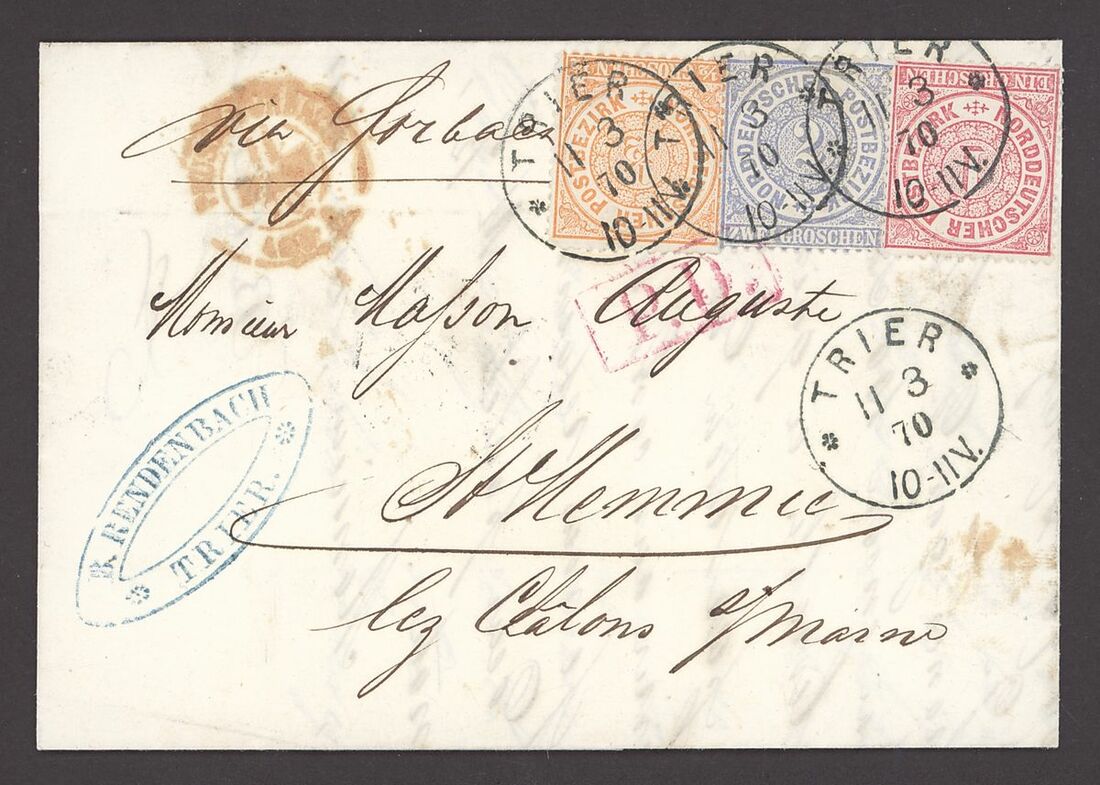 via Forbach
TRIER
11 3
70
10-11V.
TRIER
11 3
70
10-11V.
TRIER
11 3
70
10-11V.
NORDDEUTSCHER POSTBEZIRK
ZWEI GROSCHEN
EIN GROSCHEN
NORDDEUTSCHER
POSTBEZIRK
P.D.
Monsieur Masson Auguste
TRIER
11 3
70
10-11V.
B. RENDENBACH
TRIER.
St Memmie
lez Châlons s/Marne